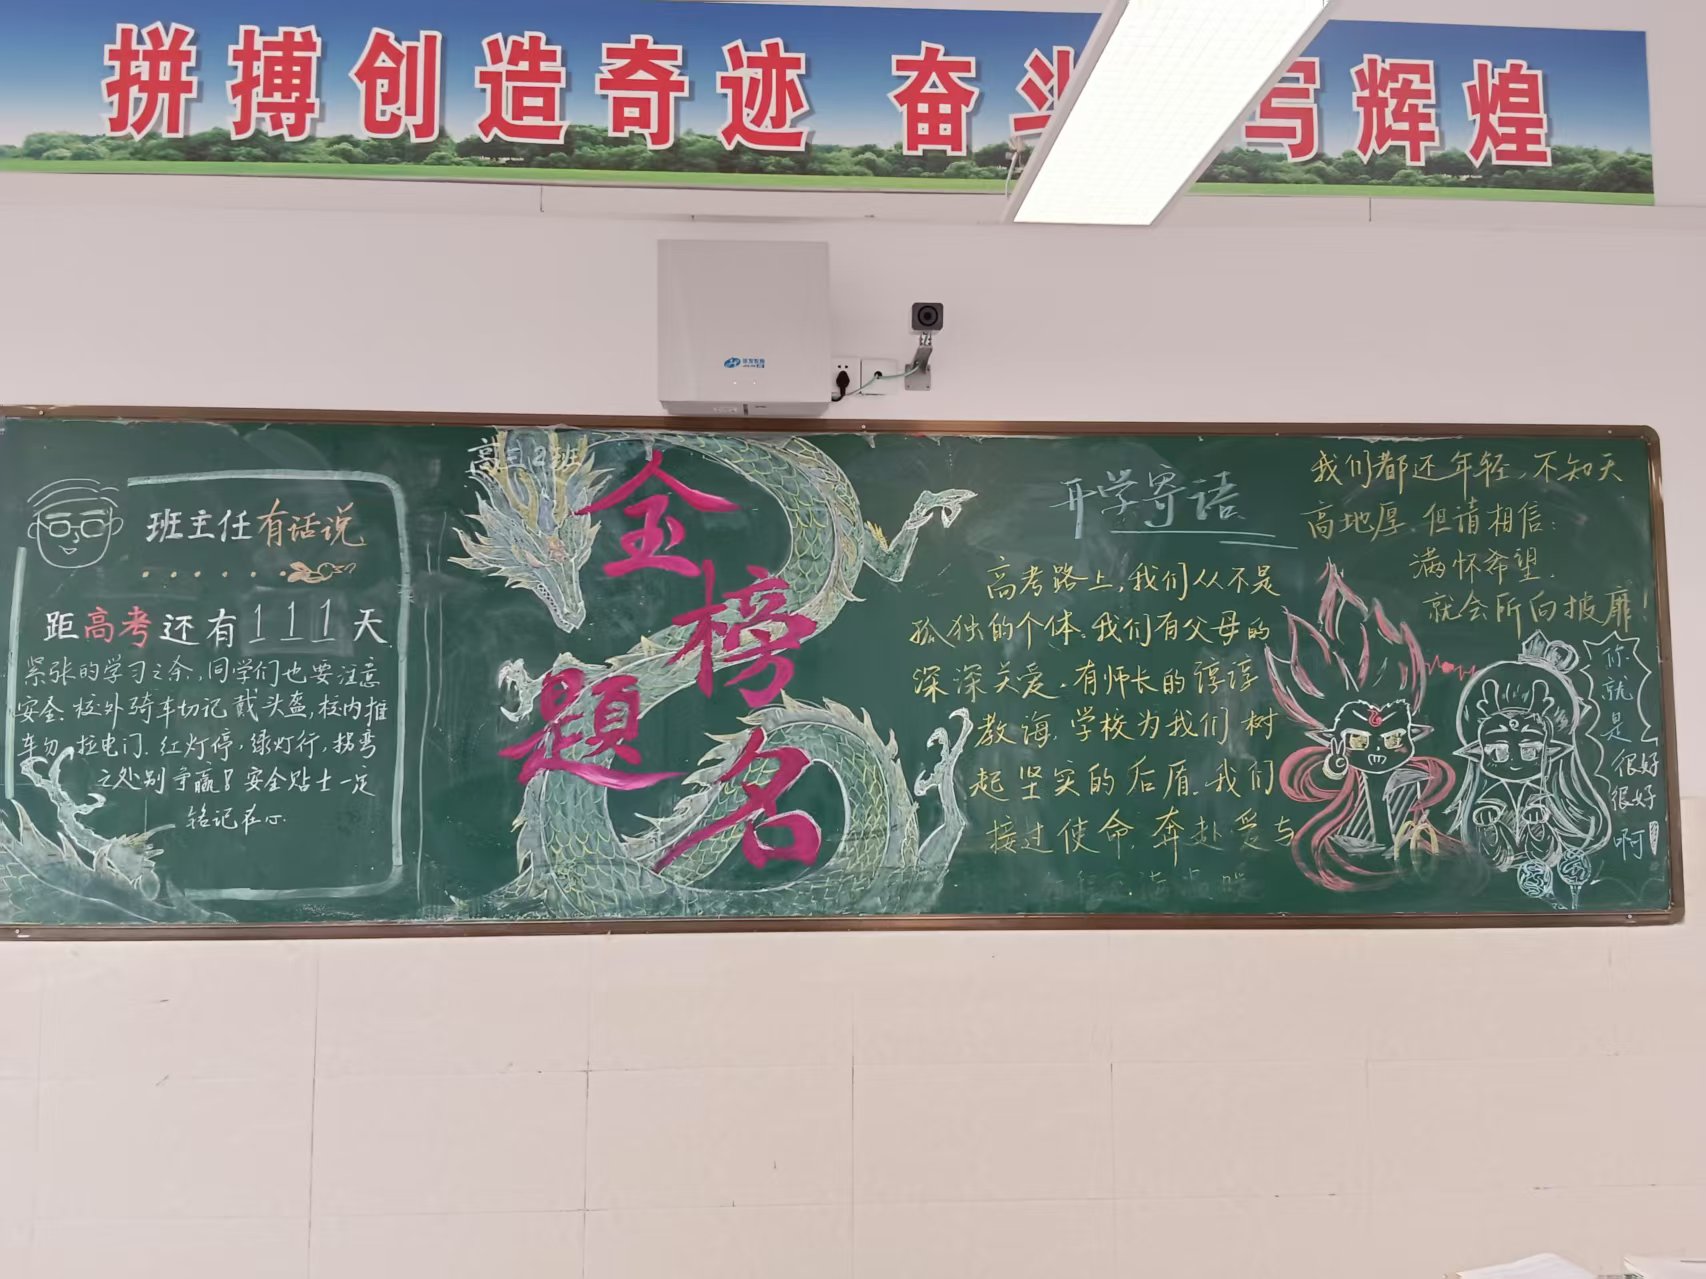 拼搏创造奇迹 奋斗写辉煌
班主任有话说
距高考还有111天
紧张的学习之余,同学们也要注意
安全、校外骑车切记戴头盔,校内推
车勿拉电门.红灯停,绿灯行,拐弯
之处别争赢!安全贴士一定
铭记在心.
高三2班
金榜
题名
开学寄语
高考路上,我们从不是
孤独的个体。我们有父母的
深深关爱.有师长的谆谆
教诲.学校为我们树
起坚实的后盾.我们
接过使命.奔赴爱与
我们都还年轻,不知天
高地厚.但请相信:
满怀希望.
就会所向披靡!
你
就
是
很好
很好
啊!